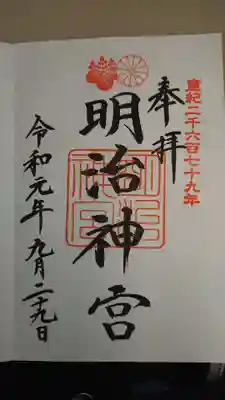 皇紀二千六百七十九年
奉拝
明治神宮
令和元年九月二十九日